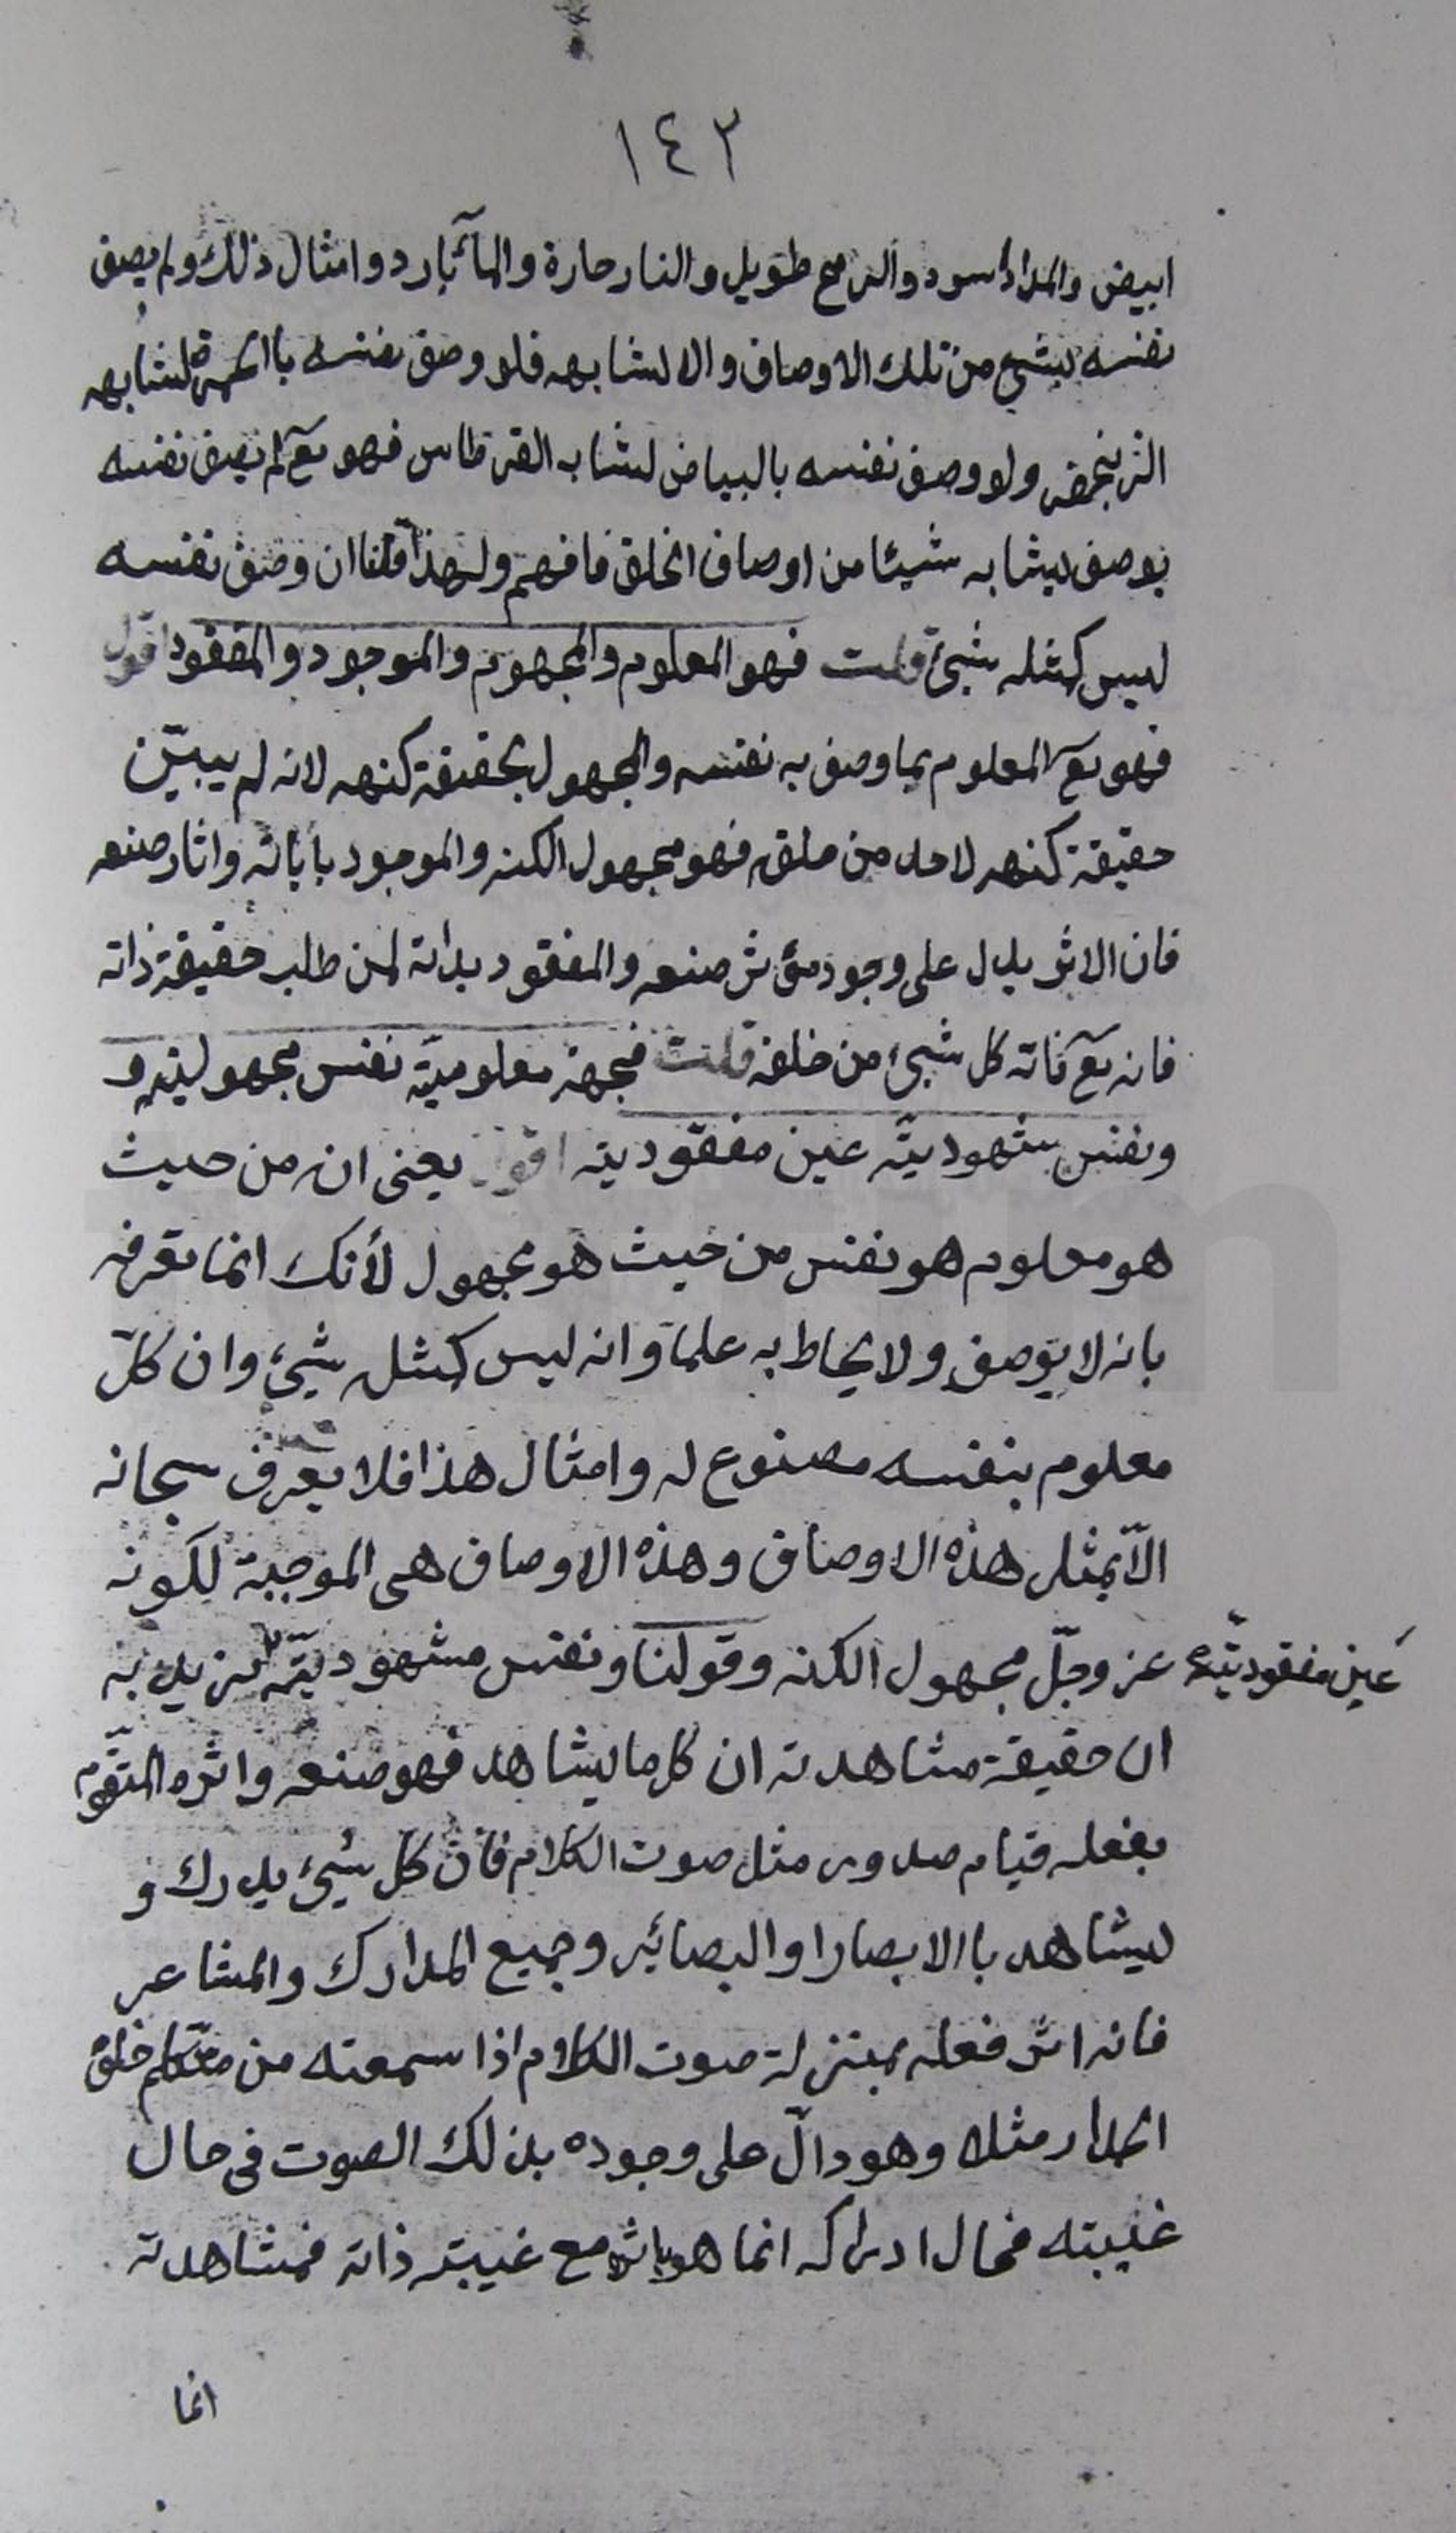 ١٤٣
ابيض والمداد اسود والرمح طويل والنار حارة والمآء بارد وامثال ذلك ولم يصف
نفسه بشيء من تلك الاوصاف والا لشابهه فلو وصف نفسه باالحمرة لشابهه
الزنجفر ولو وصف نفسه بالبياض لشابه القرطاس فهو تع لم يصف نفسه
بوصف يشابه شيئا من اوصاف الخلق فافهم ولهذا قلنا ان وصف نفسه
ليس كمثله شيئ قلت فهو المعلوم والمجهول والموجود والمفقود اقول
فهو تع المعلوم بما وصف به نفسه والمجهول بحقيقة كنهه لانه لم يبيّن
حقيقة كنهه لاحد من خلقه فهو مجهول الكنه والموجود باياته واثار صنعه
فان الاثر يدل على وجود مؤثر صنعه والمفقود بذاته لمن طلب حقيقة ذاته
فانه تع فاته كل شيئ من خلقه قلت فجهة معلوميّته نفس مجهوليته و
ونفس مشهوديّته عين مفقوديته اقول يعنى انه من حيث
هو معلوم هو نفس من حيث هو مجهول لأنك انما تعرفه
بانه لا يوصف ولا يحاط به علما وانه ليس كمثله شيئ وان كلّ
معلوم بنفسه مصنوع له وامثال هذا فلا يعرف سبحانه
الاّ بمثل هذه الاوصاف وهذه الاوصاف هى الموجبة لكونه
عز وجلّ مجهول الكنه وقولنا ونفس مشهوديّته نريد به
عين مفقوديّته
ان حقيقة مشاهدته ان كل ما يشاهد فهو صنعه واثره المتقوّم
بفعله قيام صدور مثل صوت الكلام فانّ كلّ شيئ يدرك و
يشاهد باالابصار او البصائر وجميع المدارك والمشاعر
فانه اثر فعله بمنزلة صوت الكلام اذا سمعته من متكلم خلف
الجدار مثلا وهو دالّ على وجوده بذلك الصوت فى حال
غيبته فحال ادراكه انما هو باثره مع غيبة ذاته فمشاهدته
انما